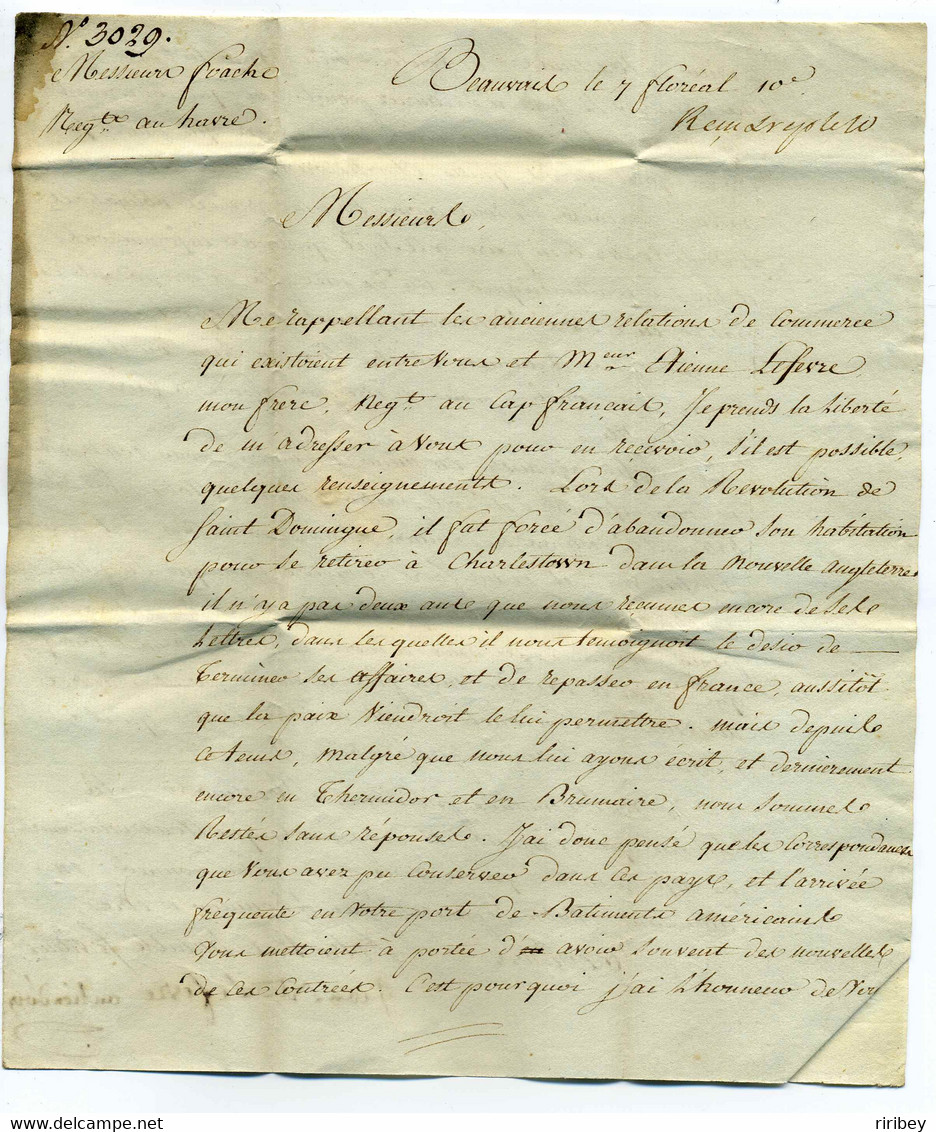 N.° 3029.
Messieurs foache
Neg.ts au havre.
Beauvais le 7 floréal 10e
Messieurs,
Me rappellant les anciennes relations de Commerce
qui existoient entre Vous et Mr. Etienne Lefevre,
mon frere, Neg.t au Cap français, Je prends la Liberté
de m'adresser à Vous pour en recevoir, s'il est possible,
quelques renseignements. Lors de la Révolution de
Saint Domingue, il fut forcé d'abandonner son habitation
pour se retirer à Charlestown dans la Nouvelle Angleterre
il n'y a pas deux ans que nous reçumes encore de ses
Lettres, dans lesquelles il nous temoignoit le desir de
Terminer ses affaires, et de repasser en france, aussitôt
que la paix Viendroit le lui permettre. mais depuis
ce tems, malgré que nous lui ayons écrit, et dernierement
encore en Thermidor et en Brumaire, nous sommes
Restés sans réponses. J'ai donc pensé que les Correspondances
que Vous avez pu Conserver dans ces pays, et l'arrivée
fréquente en Votre port de Batiments américains
Vous mettoient à portée d' avoir souvent des nouvelles
de ces Contrées. C'est pourquoi j'ai L'honneur de Vou
riribey